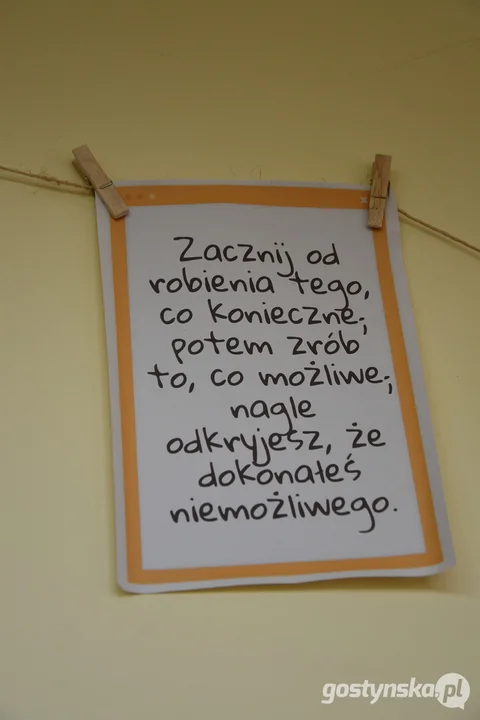 Zacznij od
robienia tego,
co konieczne;
potem zrób
to, co możliwe;
nagle
odkryjesz, że
dokonałeś
niemożliwego.
gostynska.pl